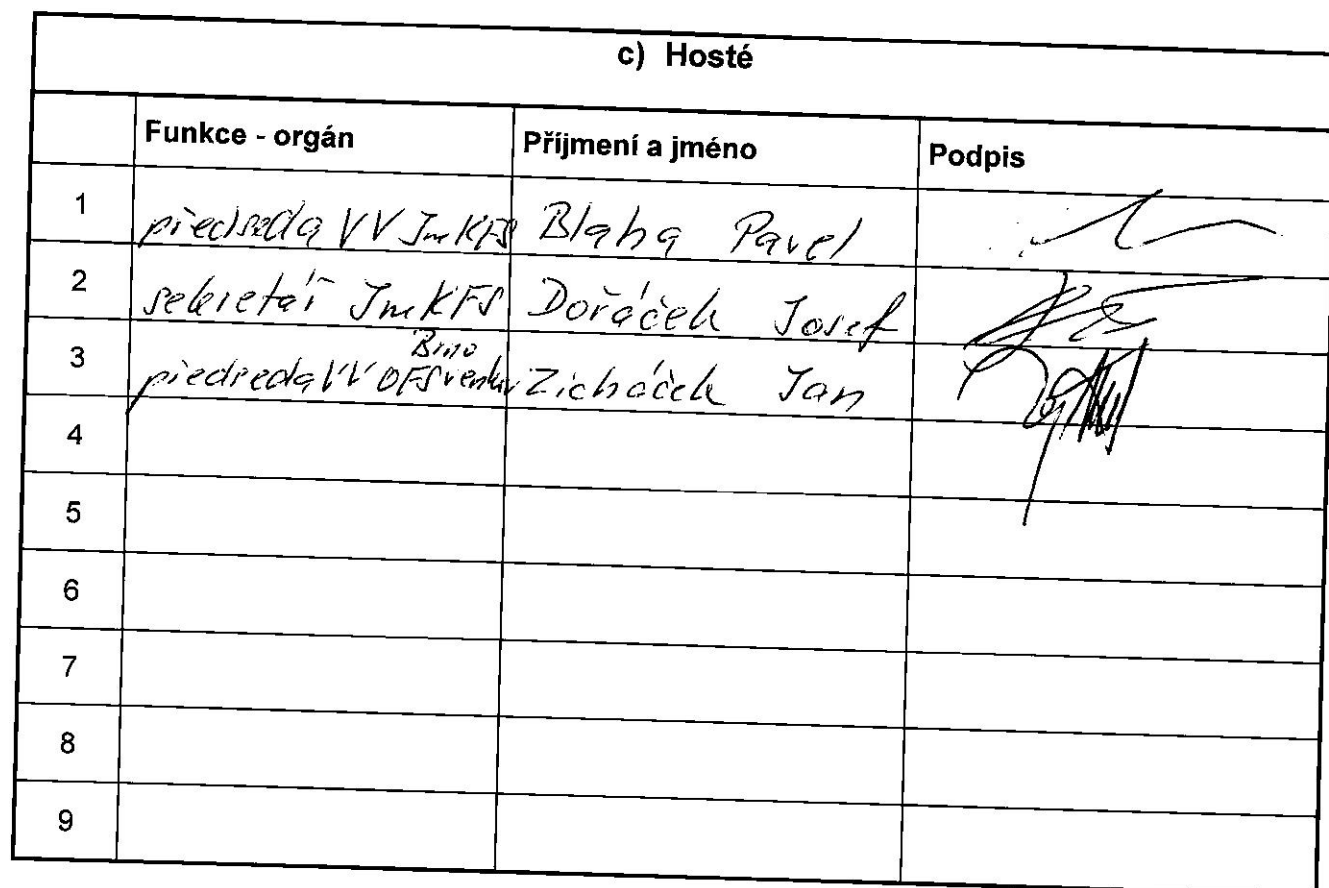 c) Hosté
Funkce - orgán Příjmení a jméno Podpis
1 předseda VV JmKFS Blaha Pavel
2 sekretář JmKFS Dořáček Josef
Brno
3 předseda VV OFS venkov Zicháček Jan
4
5
6
7
8
9